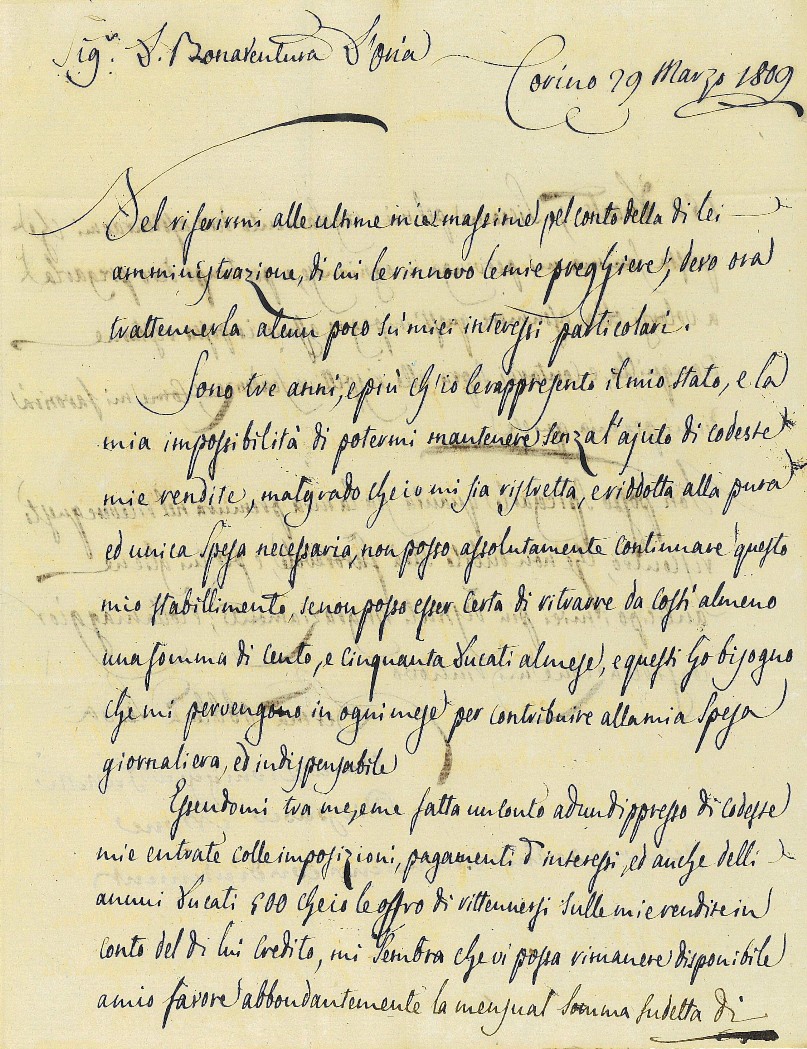 Sig.r D. Bonaventura D'Oria
Torino 29 Marzo 1809
Nel riferirmi alle ultime mie massime pel conto della di lei
amministrazione, di cui le rinnovo le mie preghiere, devo ora
trattennerla alcun poco sù miei interessi particolari.
Sono tre anni, e più ch'io le rappresento il mio stato, e la
mia impossibilità di potermi mantenere senza l'ajuto di codeste
mie rendite, malgrado che io mi sia ristretta, e riddotta alla pura
ed unica spesa necessaria, non posso assolutamente continuare questo
mio stabillimento, se non posso esser certa di ritrarre da costì almeno
una somma di cento, e cinquanta Ducati al mese, e questi ho bisogno
che mi pervengono in ogni mese per contribuire alla mia spesa
giornaliera, ed indispensabile
Essendomi tra me, e me fatta un conto ad un dippresso di codeste
mie entrate colle imposizioni, pagamenti d'interessi, ed anche delli
annui Ducati 500 che io le offro di rittennersi sulle mie rendite in
conto del di lui credito, mi sembra che vi possa rimanere disponibile
a mio favore abbondantemente la mensual somma sudetta di